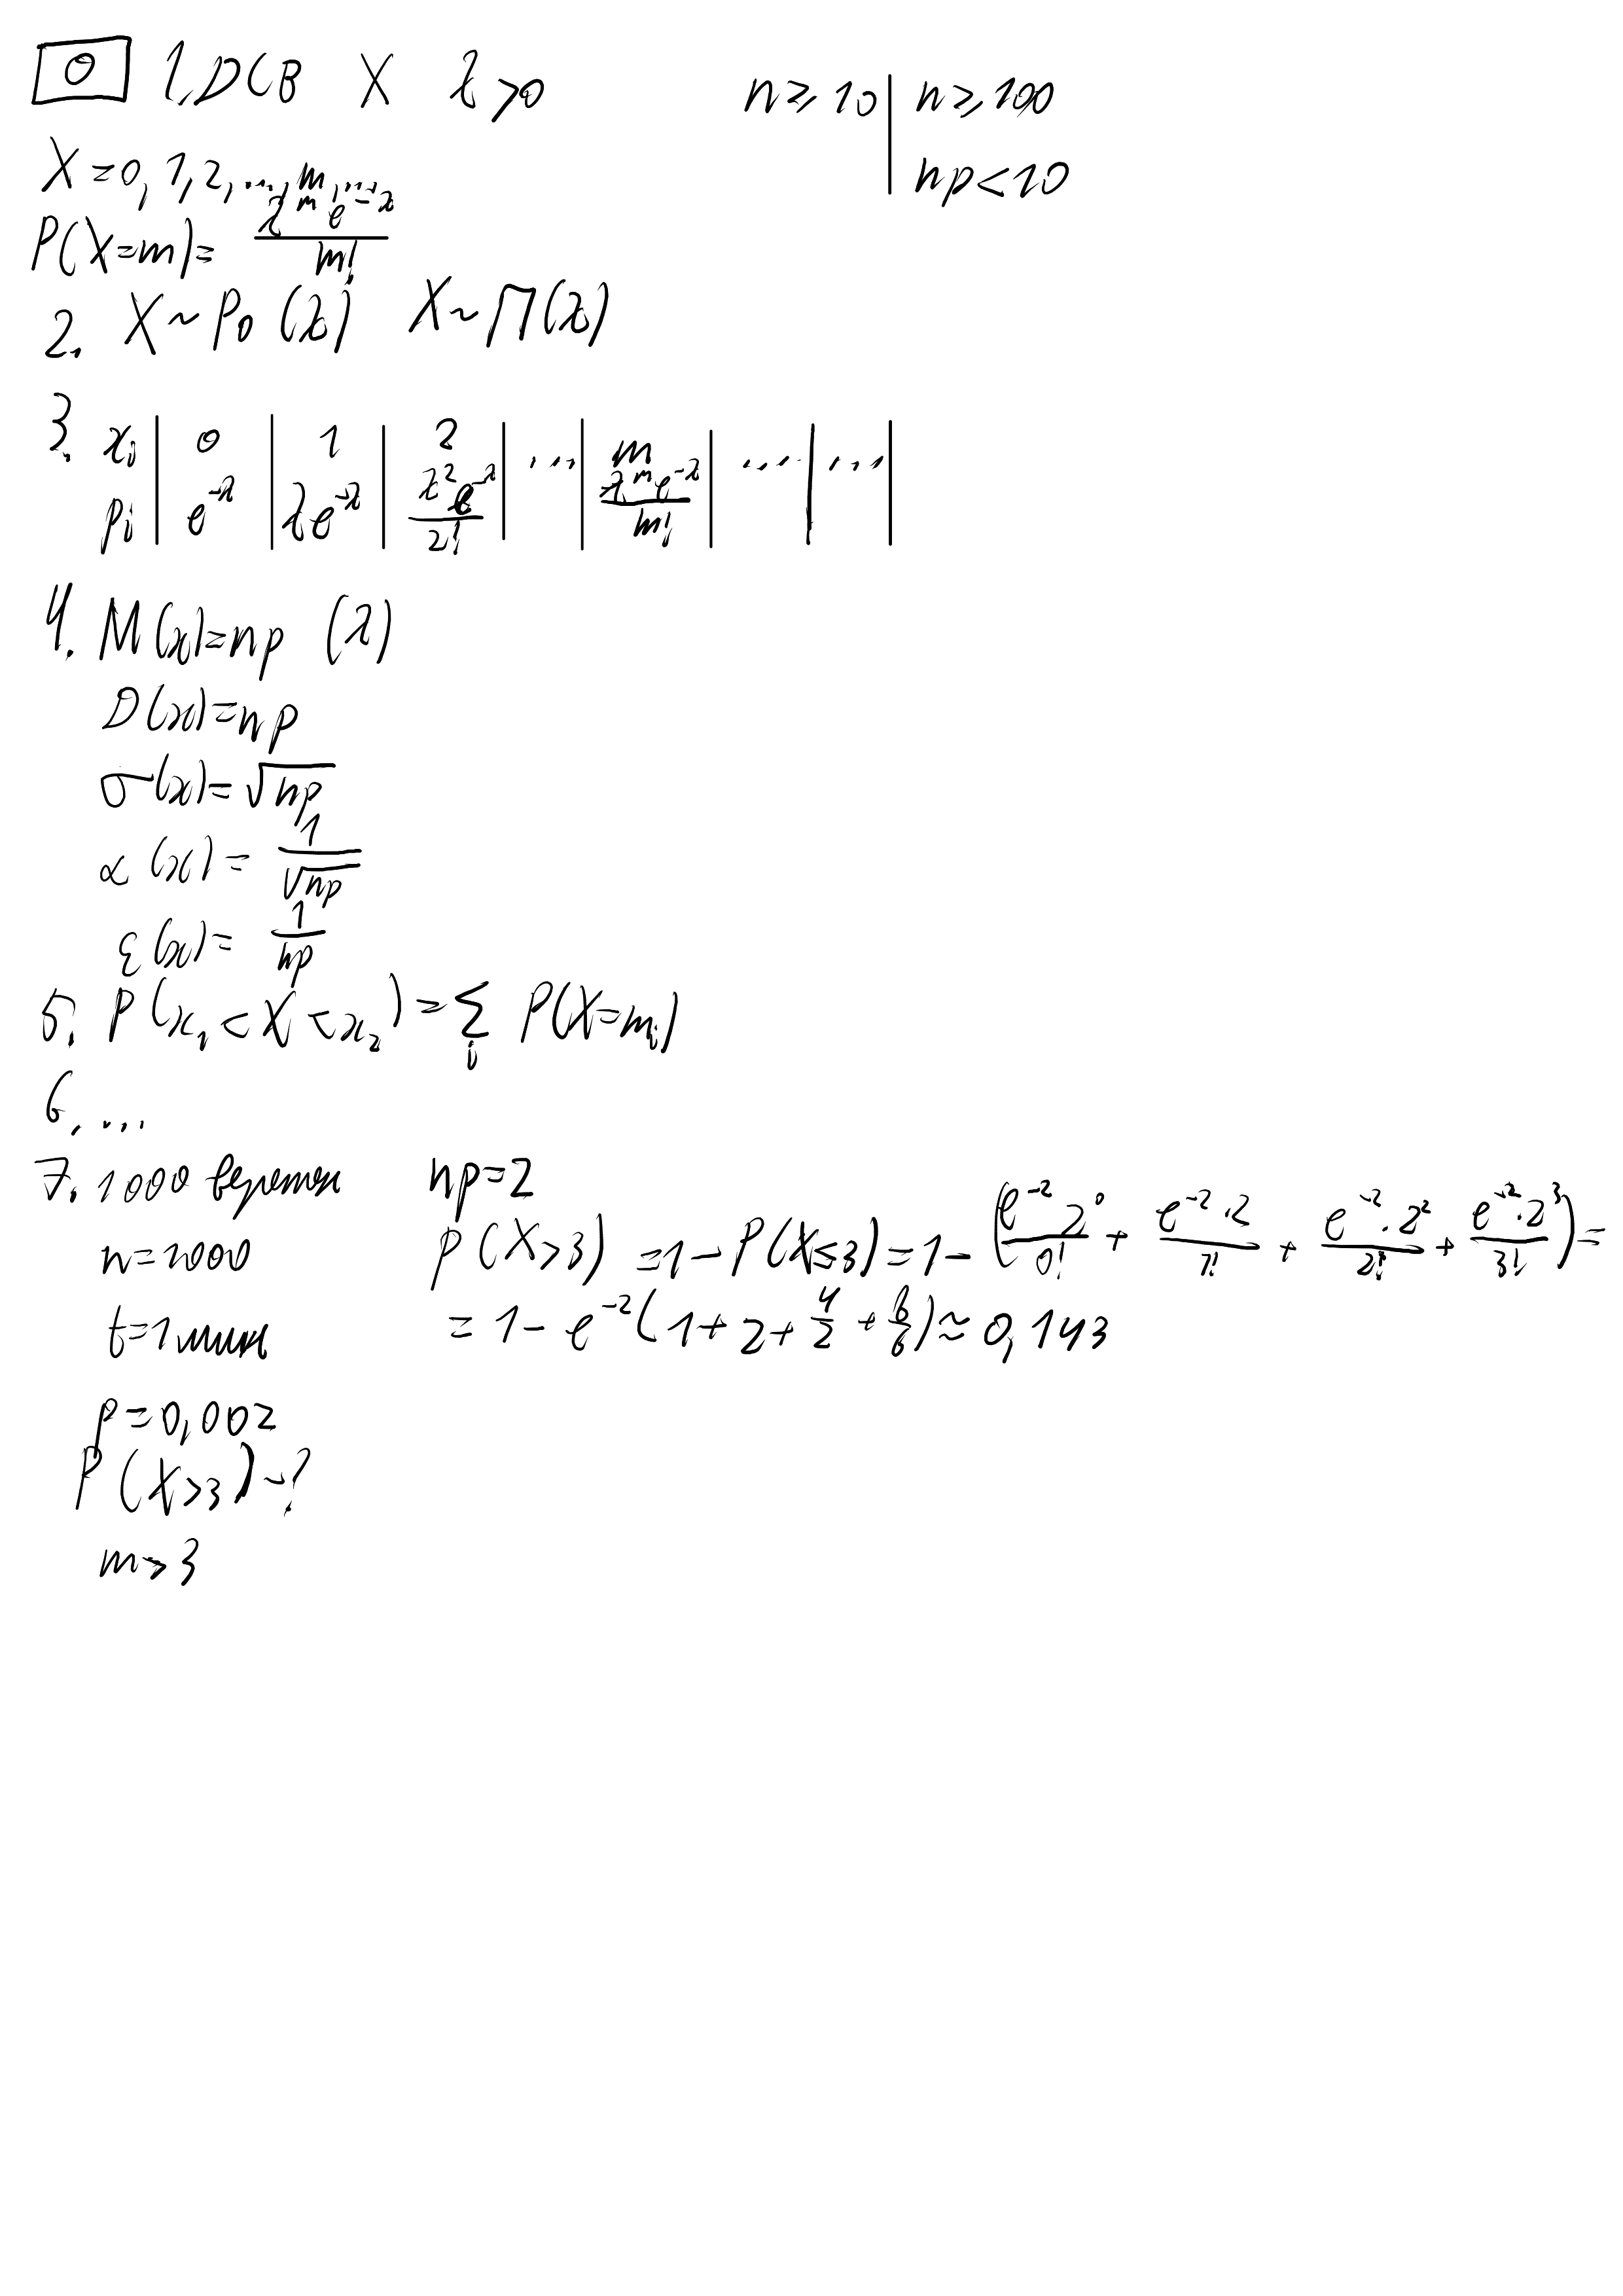 0 1. DCB X λ>0 n ≥ 10 | n ≥ 100
X = 0, 1, 2, ..., m, ... np < 10
P(X=m) = λ^m e^-λ / m!
2. X ~ Po (λ) X ~ П(λ)
3. xi | 0 | 1 | 2 | ... | m | ... | ... |
pi | e^-λ | λe^-λ | λ^2 e^-λ / 2! | | λ^m e^-λ / m! |
4. M(x) = np (λ)
D(x) = np
σ(x) = √np
α(x) = 1/√np
ε(x) = 1/np
5. P(x1 < X < x2) = Σ i P(X=mi)
6. ...
7. 1000 веретен np=2
n=1000 P(X>3) = 1 - P(X≤3) = 1 - (e^-2 2^0 / 0! + e^-2 · 2 / 1! + e^-2 · 2^2 / 2! + e^-2 · 2^3 / 3!) =
t=1 мин = 1 - e^-2 (1 + 2 + 4/2 + 8/6) ≈ 0,143
p=0,002
P(X>3) - ?
m>3